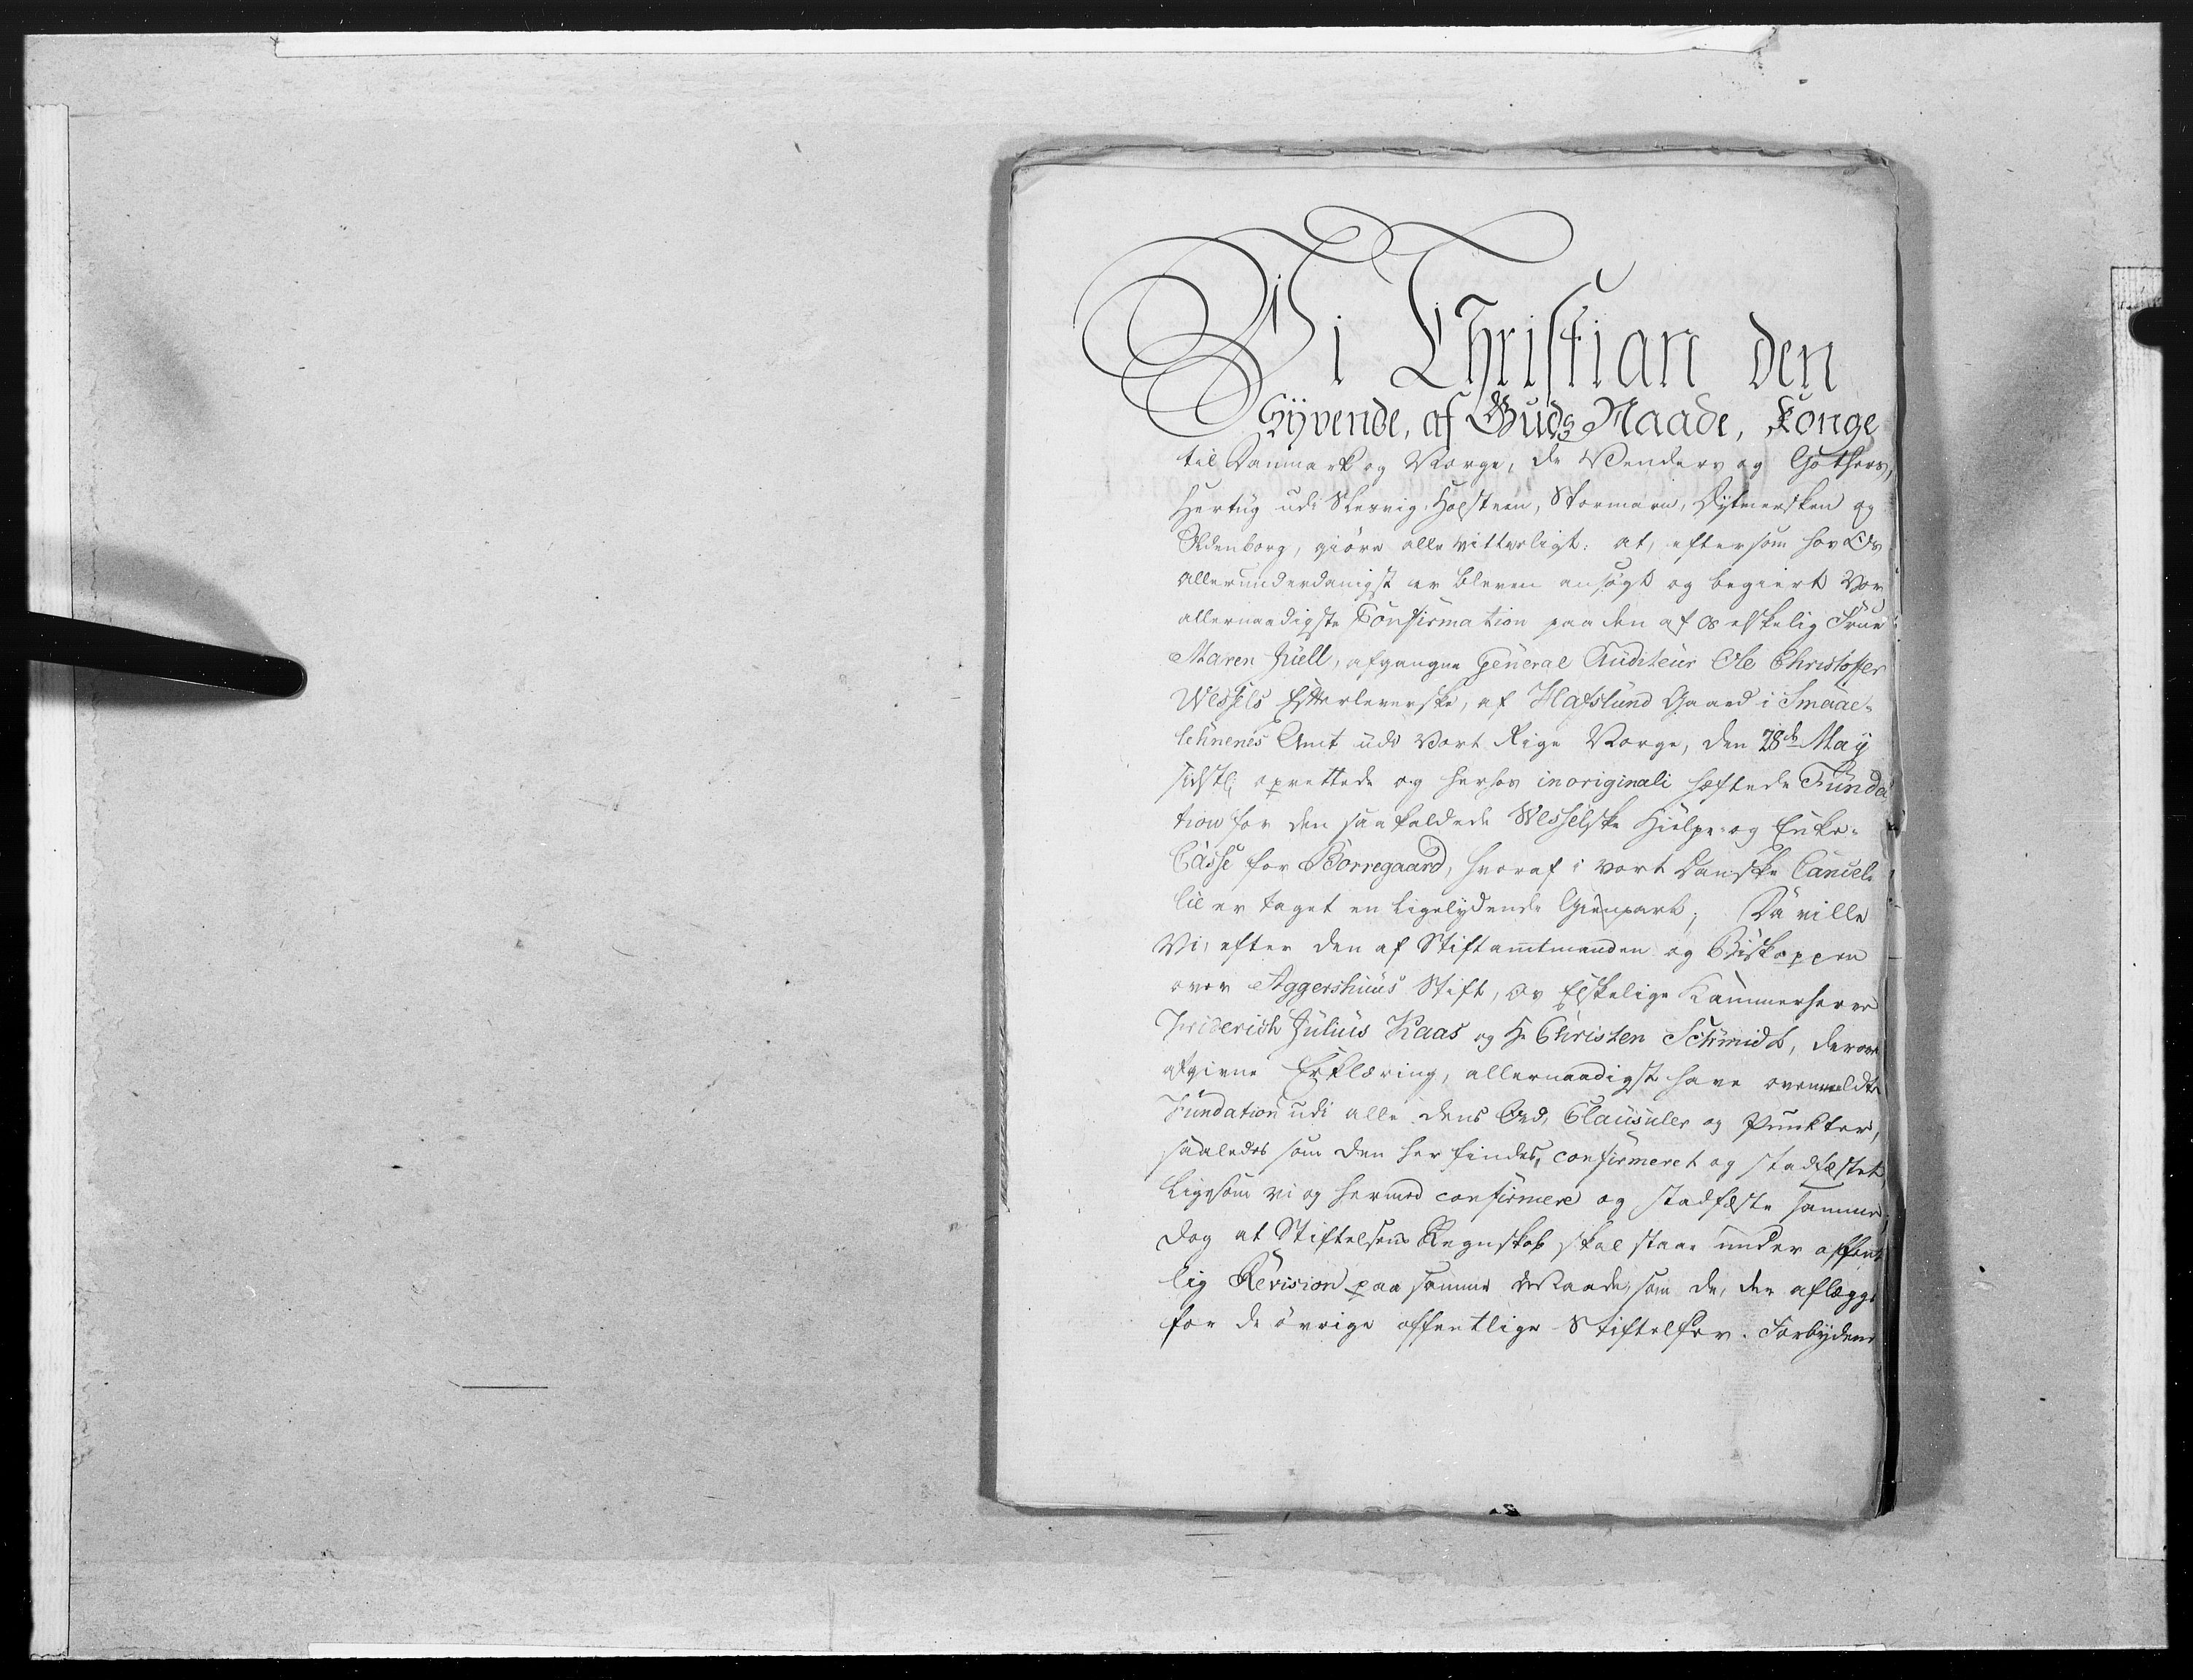 Vi Christian den
Syvende, af Guds Naade, Konge
til Danmark og Norge, de Venders og Gothers,
Hertug udi Slesvig, Holsteen, Stormarn, Dytmersken og
Oldenborg, giøre alle vitterligt: at, eftersom hos Os
allerunderdanigst er bleven ansøgt og begiert Vor
allernaadigste Confirmation paa den af os elskelig Frue
Maren Juell, afgangne General Auditeur Ole Christopher
Wessels Efterleverske, af Hafslund Gaard i Smaae-
lehnenes Amt udi Vort Rige Norge, den 28de May
sidstl: oprettede og herhos in originali heftede Funda
tion for den saakaldede Wesselske Hielpe- og Enke-
Casse for Borregaard, hvoraf i vort Danske Cancel-
lie er taget en ligelydende Gienpart; Da ville
Vi, efter den af Stiftamtmanden og Biskoppen
over Aggershuus Stift, Os Elskelige Kammerherre
Friderich Julius Kaas og Hr Christen Schmidt, derover
afgivne Erklæring, allernaadigst have ovenmeldte
Fundation udi alle dens Ord, Clausuler og Puncter,
saaledes som den her findes, confirmeret og stadfæstet
Ligesom vi og hermed confirmere og stadfæste samme,
dog at Stiftelsens Regnskab skal staae under offent
lig Revision paa samme Maade, som de, der aflægges
for de øvrige offentlige Stiftelser. Forbydende